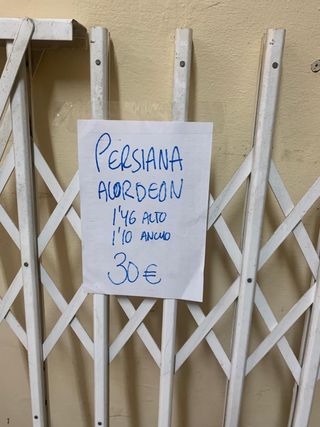 PERSIANA
ACORDEON
1'46 ALTO
1'10 ANCHO
30€